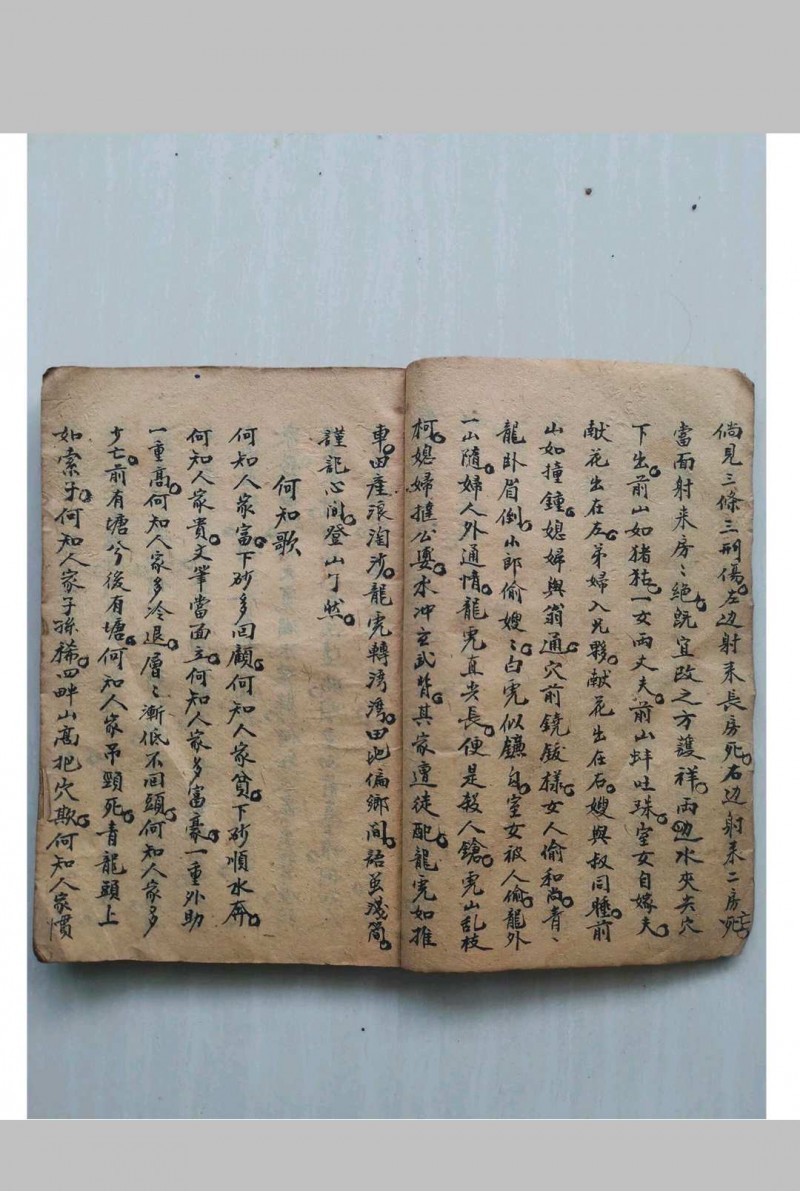 倘見三條三刑傷。左边射来長房死。右边射来二房亡
當面射来房〻絕。既宜改之方護祥。两边水夾去穴
下生。前山如猪牯。一女两丈夫。前山蚌吐珠。室女自嫁夫。
献花出在左。弟婦入兄夥。献花出在右。嫂與叔同睡。前
山如撞鍾。媳婦與翁通。穴前鐃鈸樣。女人偷和尚。青〻
龍卧眉倒。小郎偷嫂〻。白虎似鐮自。室女被人偷。龍外
一山隨。婦人外通情。龍虎直尖長。便是殺人鎗。虎山乱枝
柯。媳婦摣公婆。水冲玄武背。其家遭徒配。龍虎如推
車。田產浪淘沙。龍虎轉湾湾。田地偏鄉間。語虽淺簡。
謹記心間。登山了然。
何知歌
何知人家富。下砂多回顧。何知人家貧。下砂順水奔。
何知人家貴。文筆當面立。何知人家多富豪。一重外助
一重高。何知人家多冷退。層〻漸低不回頭。何知人家多
少亡。前有塘兮後有塘。何知人家吊頸死。青龍頭上
如索牙。何知人家子孫稀。四畔山高把穴欺。何知人家慣